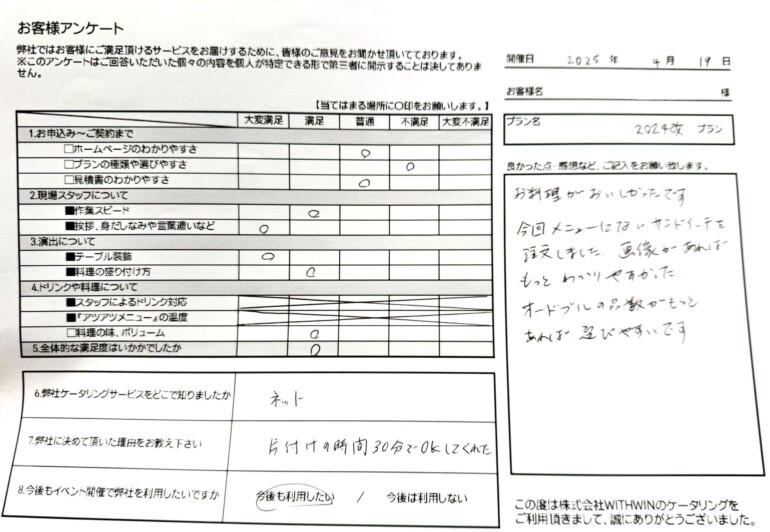 お客様アンケート
弊社ではお客様にご満足頂けるサービスをお届けするために、皆様のご意見をお聞かせ頂いております。
※このアンケートはご回答いただいた個々の内容を個人が特定できる形で第三者に開示することは決してありま
せん。
開催日 2025 年 4 月 19 日
お客様名 様
プラン名 2024改 プラン
【当てはまる場所に○印をお願いします。】
大変満足 満足 普通 不満足 大変不満足
1.お申込み～ご契約まで
□ホームページのわかりやすさ ○
□プランの種類や選びやすさ ○
□見積書のわかりやすさ ○
2.現場スタッフについて
■作業スピード ○
■挨拶、身だしなみや言葉遣いなど ○
3.演出について
■テーブル装飾 ○
■料理の盛り付け方 ○
4.ドリンクや料理について
■スタッフによるドリンク対応
■『アツアツメニュー』の温度
□料理の味、ボリューム ○
5.全体的な満足度はいかかでしたか ○
6.弊社ケータリングサービスをどこで知りましたか ネット
7.弊社に決めて頂いた理由をお教え下さい 片付けの時間30分でOKしてくれた
8.今後もイベント開催で弊社を利用したいですか 今後も利用したい / 今後は利用しない
良かった点・感想など、ご記入をお願い致します。
お料理がおいしかったです
今回メニューにないサンドイッチを
注文しました. 画像があれば
もっとわかりやすかった
オードブルの品数がもっと
あれば選びやすいです
この度は株式会社WITHWINのケータリングを
ご利用頂きまして、誠にありがとうございました。